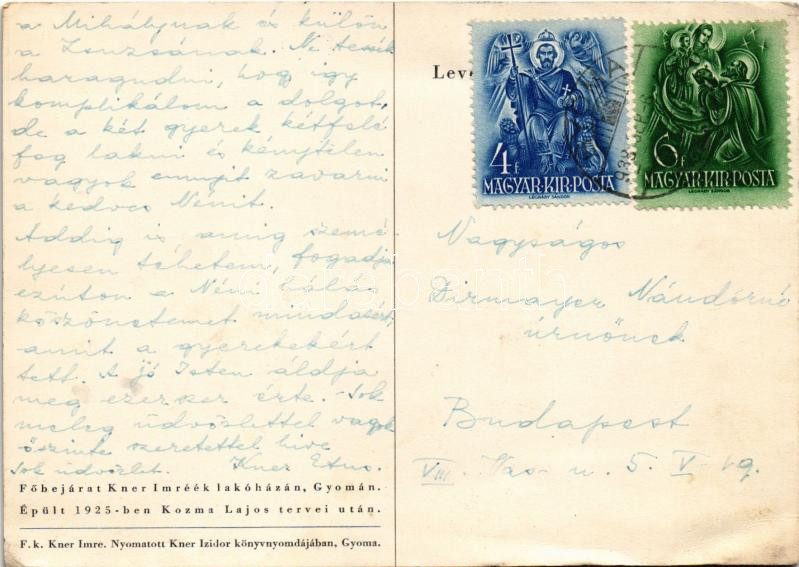 a Mihálynak és külön
a Zsuzsának. Ne tessék
haragudni, hogy így
komplikálom a dolgot,
de a két gyerek kétfelé
fog lakni és kénytelen
vagyok ennyit zavarni
a kedves Nénit.
Addig is amíg szemé-
lyesen tehetem, fogadja
ezúton a Néni hálás
köszönetemet mindazért
amit a gyerekekért
tett. A jó Isten áldja
meg ezerszer érte. Sok
meleg üdvözlettel vagyok
őszinte szeretettel híve
Sok üdvözlet. Kner Etus.
Főbejárat Kner Imréék lakóházán, Gyomán.
Épült 1925-ben Kozma Lajos tervei után.
F. k. Kner Imre. Nyomatott Kner Izidor könyvnyomdájában, Gyoma.
Lev
4f
MAGYAR·KIR·POSTA
LÉGRÁDY SÁNDOR
6f
MAGYAR·KIR·POSTA
LÉGRÁDY SÁNDOR
Nagyságos
Dirmayer Nándorné
úrnőnek
Budapest
VIII. Vas u. 5. V. 19.